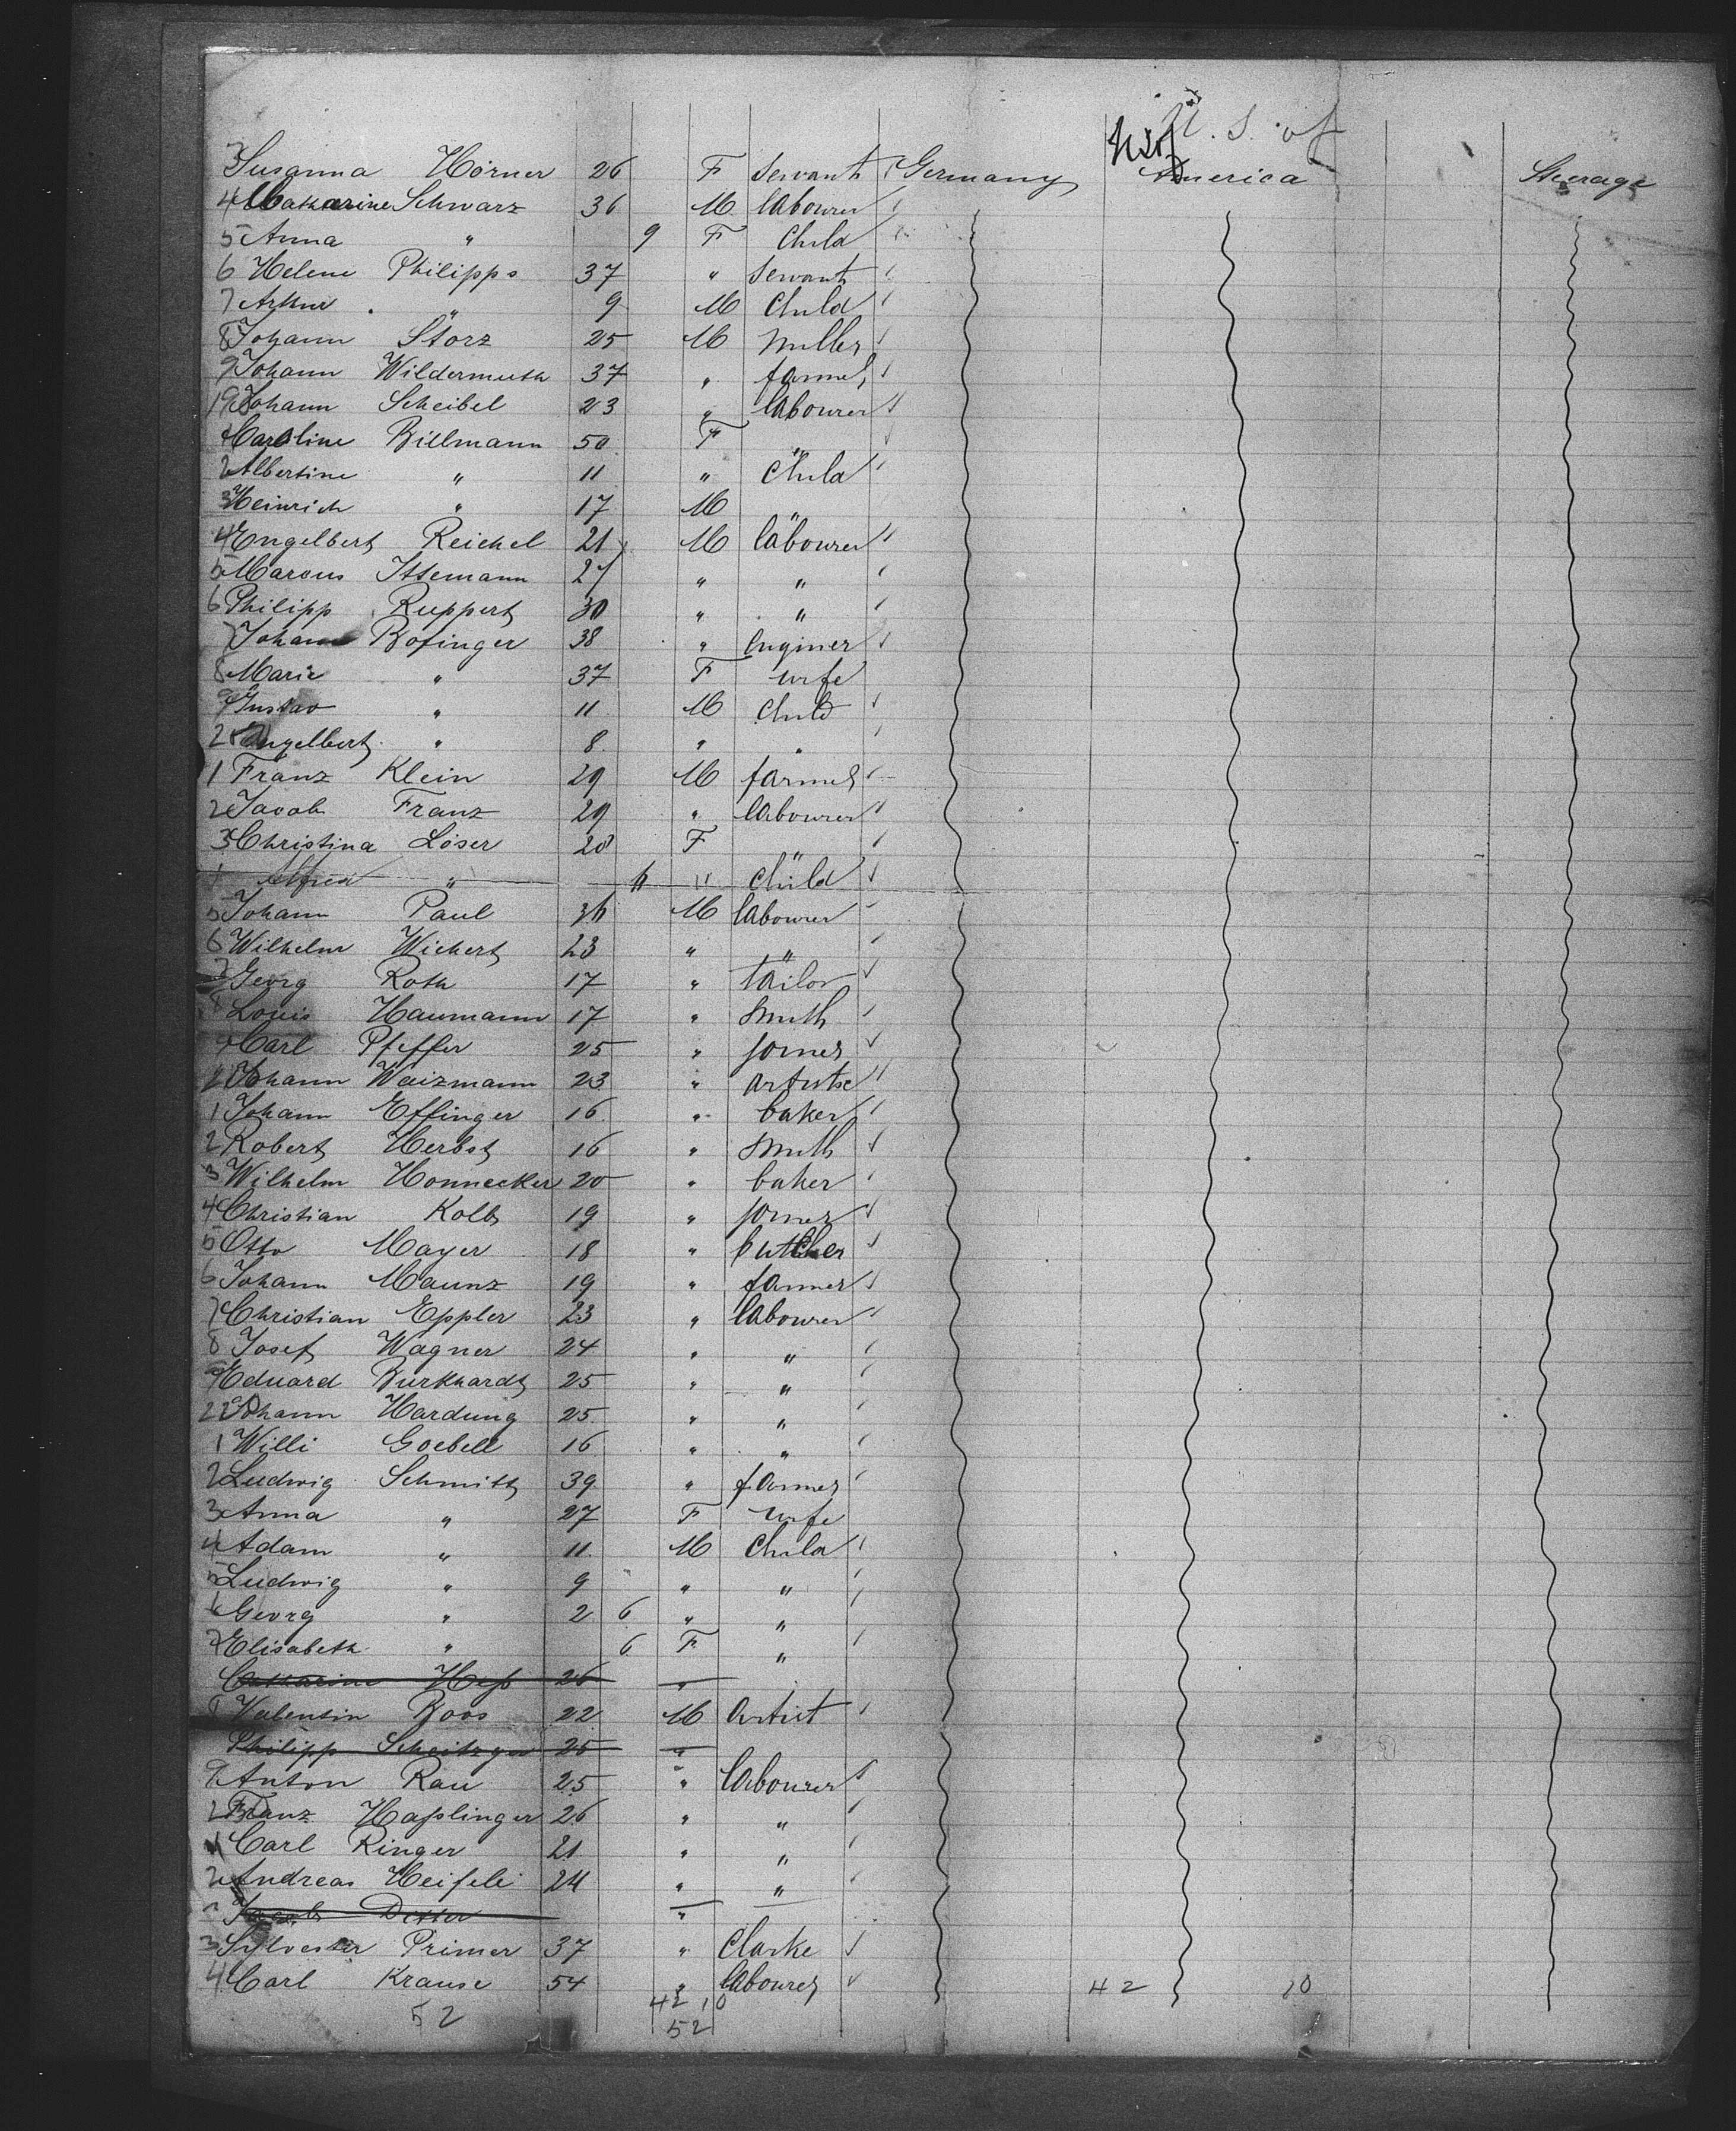 U. S. of
3 Susanna Hörner 26 F Servant Germany America Steerage
4 Katharine Schwarz 36 M labourer
5 Anna " 9 F Child
6 Helene Philipps 37 " Servant
7 Arthur " 9 M Child
8 Johann Störz 25 M miller
9 Johann Wildermuth 37 " farmer
Johann Scheibel 23 " labourer
Caroline Billmann 50 F "
2 Albertine " 11 " Child
3 Heinrich " 17 M "
4 Engelbert Reichel 21 M labourer
5 Marcus Ittemann 27 " "
6 Philipp Ruppert 30 " "
7 Johann Bofinger 38 " Enginer
8 Marie " 37 F wife
9 Gustav " 11 M Child
Engelbert " 8 " "
1 Franz Klein 29 M farmer
2 Jacob Franz 29 " labourer
3 Christina Löser 28 F "
Alfred " " Child
5 Johann Paul M labourer
6 Wilhelm Wickert 23 " "
7 Georg Roth 17 " tailor
8 Louis Haumann 17 " Smith
9 Carl Pfeffer 25 " joiner
Johann Waizmann 23 " artiste
1 Johann Effinger 16 " baker
2 Robert Herbst 16 " Smith
3 Wilhelm Honnecker 20 " baker
4 Christian Kolb 19 " joiner
5 Otto Mayer 18 " butcher
6 Johann Maunz 19 " farmer
7 Christian Eppler 23 " labourer
8 Josef Wagner 24 " "
9 Eduard Burkhardt 25 " "
Johann Hardung 25 " "
1 Willi Goebell 16 " "
2 Ludwig Schmitt 39 " farmer
3 Anna " 27 F wife
4 Adam " 11 M Child
5 Ludwig " 9 " "
6 Georg " 2 6 " "
7 Elisabeth " 6 F "
Catharine Heß 26 "
8 Valentin Boos 22 M Artist
Philipp Scheitzger 25 "
9 Anton Rau 25 " labourer
Franz Haßlinger 26 " "
1 Carl Ringer 21 " "
2 Andreas Heifele 24 " "
Jacob Dexter "
3 Sylvester Primer 37 " Clarke
4 Carl Krause 54 " labourer
42 10 42 10
52 52